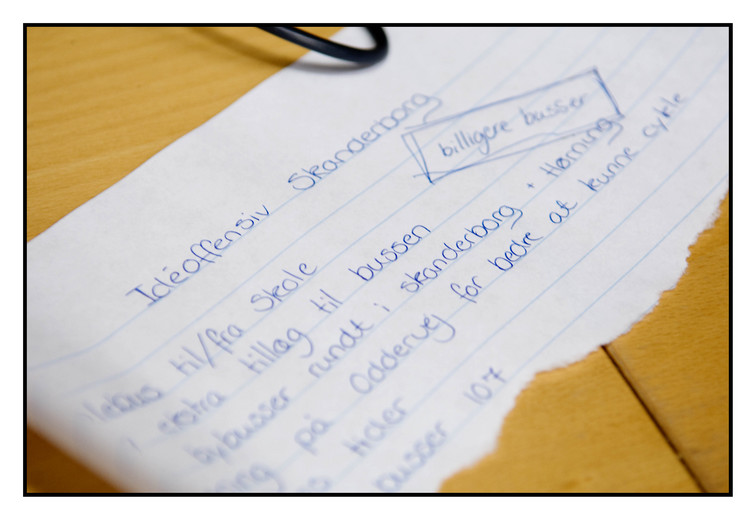 Idéoffensiv Skanderborg
billigere busser
til/fra Skole
ekstra tillæg til bussen
bybusser rundt i skanderborg + Hørning
på Oddervej for bedre at kunne cykle
tider
busser 107